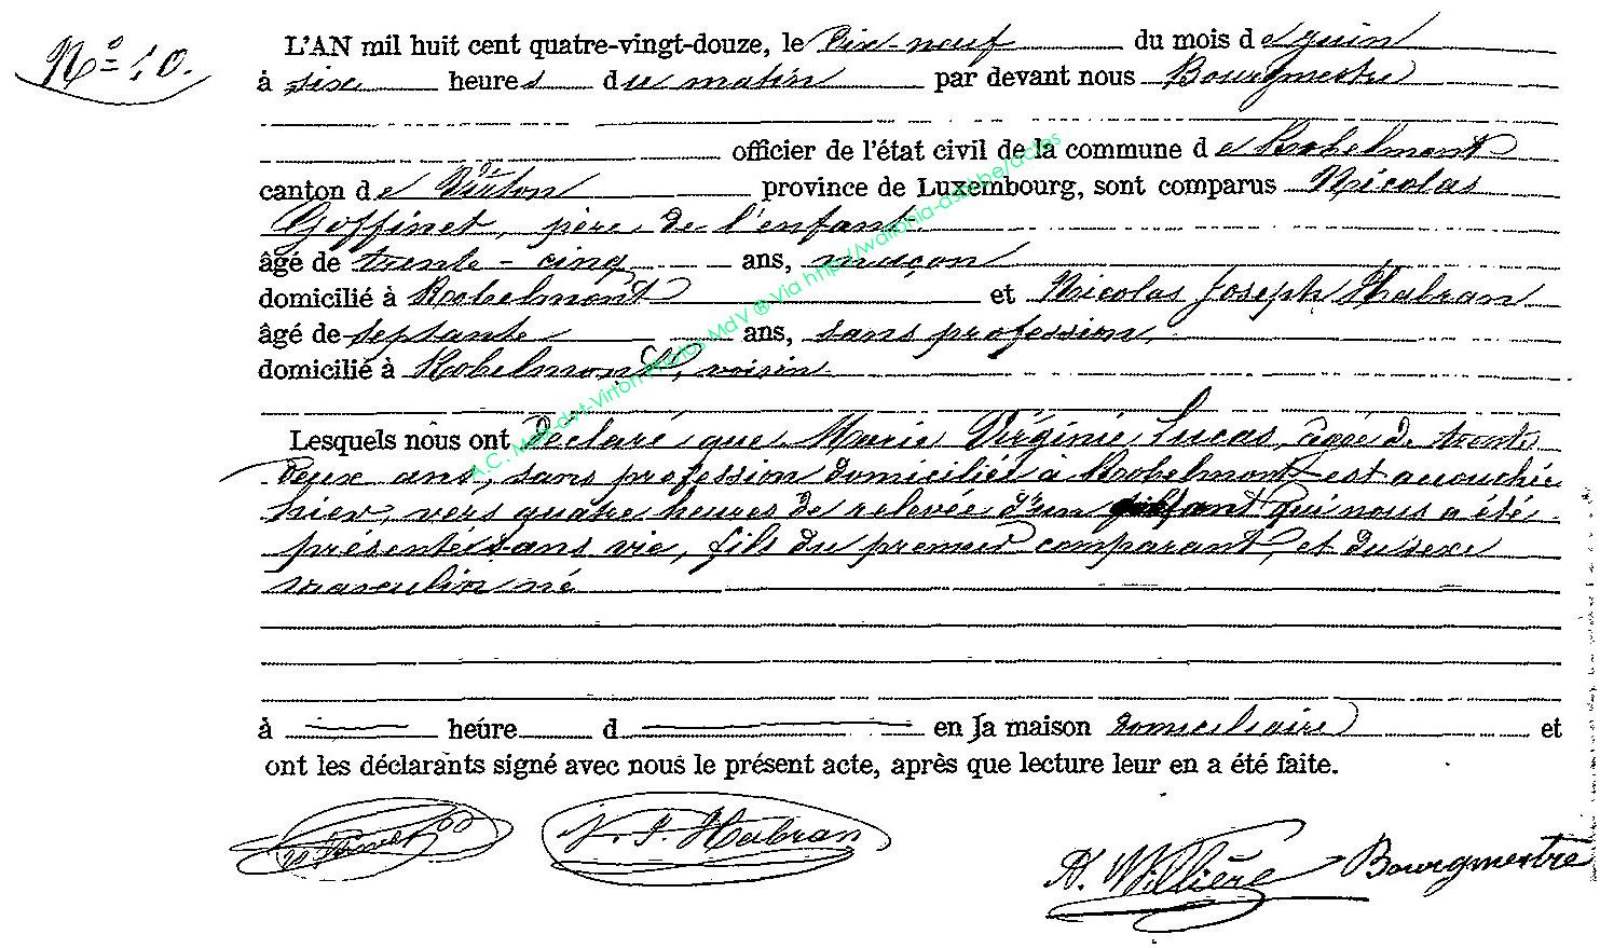 N° 10.
L'AN mil huit cent quatre-vingt-douze, le Dix-neuf du mois de Juin
à six heures du matin par devant nous Bourgmestre
officier de l'état civil de la commune de Robelmont
canton de Virton province de Luxembourg, sont comparus Nicolas
Goffinet, père de l'enfant
âgé de trente-cinq ans, maçon
domicilié à Robelmont et Nicolas Joseph Habran
âgé de septante ans, sans profession,
domicilié à Robelmont, voisin
Lesquels nous ont Déclaré que Marie Virginie Lucas, âgée de trente
deux ans, sans profession domiciliée à Robelmont est accouchée
hier, vers quatre heures de relevée d'un enfant qui nous a été
présenté sans vie, fils du premier comparant, et du sexe
masculin né
à heure d en la maison domiciliaire et
ont les déclarants signé avec nous le présent acte, après que lecture leur en a été faite.
N. J. Habran
H. Willière Bourgmestre
A.C. MdV dvt-Virton Photos MdV ® Via http://wallonia-asbl.be/actes